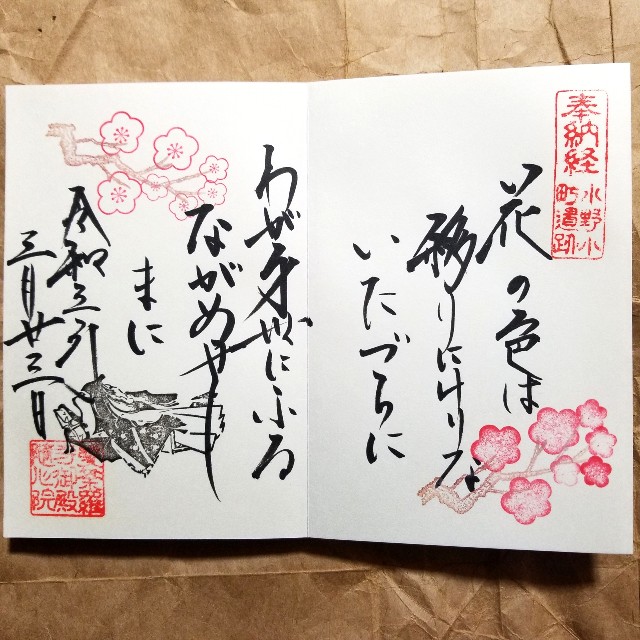 奉納経
小野小
町遺跡
花の色は
移りにけりな
いたづらに
わが身世にふる
ながめせし
まに
令和三年
三月廿三日
曼荼羅
御殿
随心院